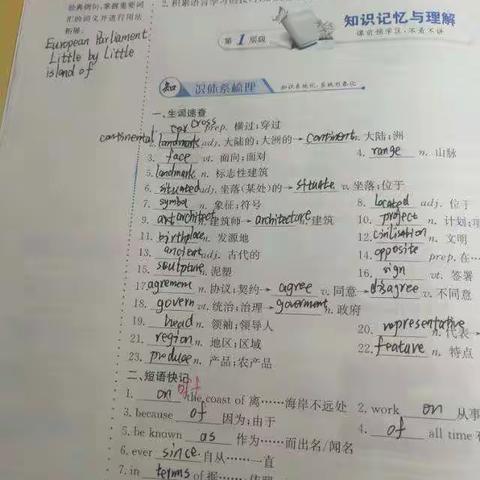 经典例句,掌握重要词
汇的词义并进行用法
拓展。
European Parliament
Little by Little
island of
知识记忆与理解
第1层级
课前预学区·不看不讲
知 识体系梳理 知识系统化,系统形象化
一、生词速查
cross prep. 横过;穿过
continental
2. landmark adj. 大陆的;大洲的→continent n. 大陆;洲
3. face vt. 面向;面对
4. range n. 山脉
5. landmark n. 标志性建筑
6. situated adj. 坐落(某处)的→situate v. 坐落;位于
7. symbol n. 象征;符号
8. located adj. 位于
9. architect 建筑师→architecture n. 建筑
10. project n. 计划;
11. birthplace n. 发源地
12. civilisation n. 文明
13. ancient adj. 古代的
14. opposite prep. 在…
15. sculpture n. 泥塑
16. sign vt. 签署
17. agrement n. 协议;契约→agree v. 同意→disagree v. 不同意
18. govern vt. 统治;治理→goverment n. 政府
19. head n. 领袖;领导人
20. representative n. 代表→
21. region n. 地区;区域
22. feature n. 特点
23. produce n. 产品;农产品
二、短语快记
1. on off the coast of 离……海岸不远处
2. work on 从事
3. because of 因为;由于
4. of all time
5. be known as 作为……而出名/闻名
6. ever since 自从……一直
7. in terms of 据……